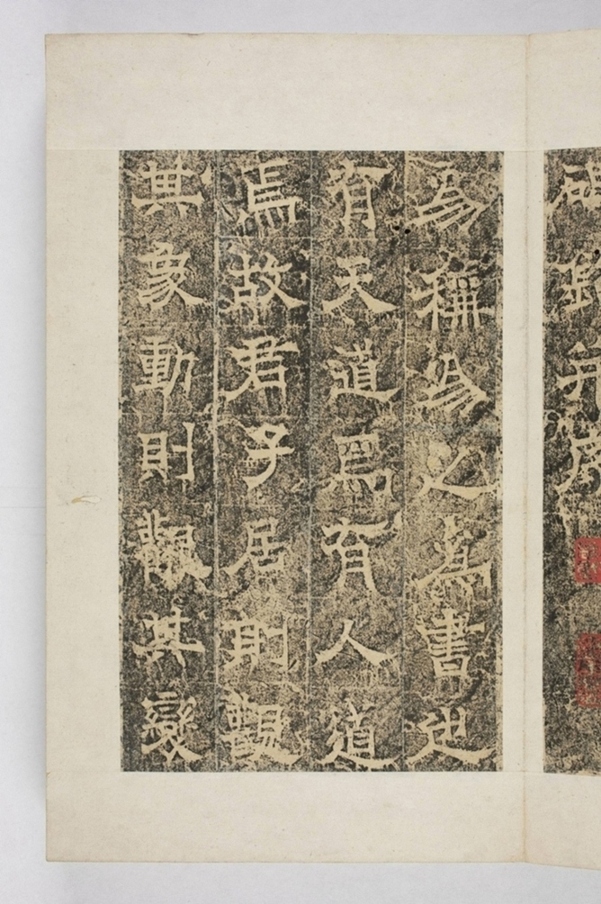 并序
易稱易之為書也
有天道焉有人道
焉故君子居則觀
其象動則觀其變